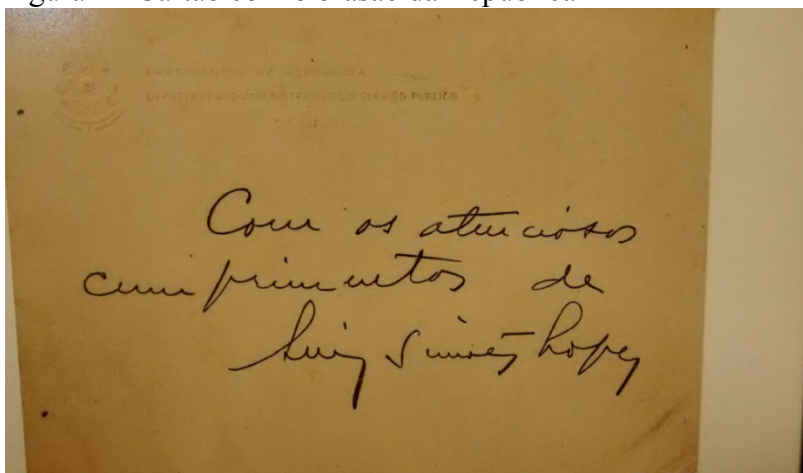 PRESIDÊNCIA DA REPÚBLICA
DEPARTAMENTO ADMINISTRATIVO DO SERVIÇO PÚBLICO
Com os atenciosos
cumprimentos de
Luiz Simões Lopes